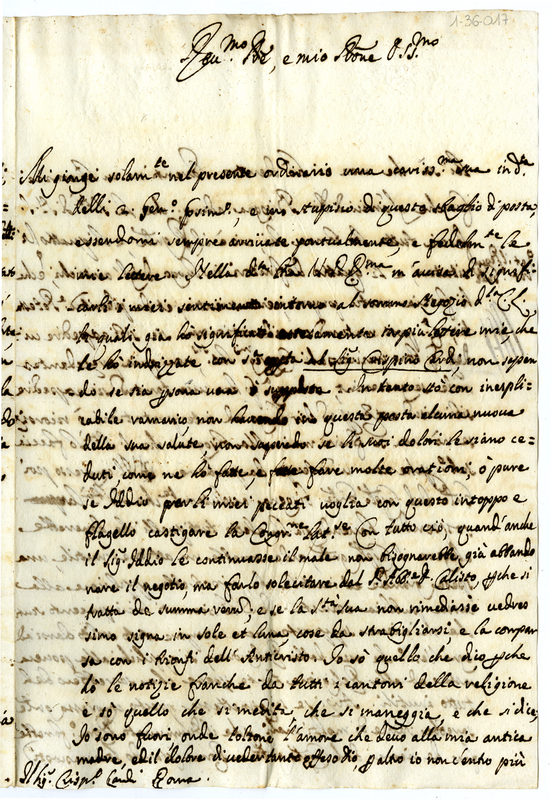 1-36-017
Reu.mo Pre, e mio Prone S.S.mo
Mi giunge solam.te nel presente ordinario una cariss.ma sua in d.ta
delli 2 Gen.o prossim.o, e mi stupisco di questo sbaglio di posta,
essendomi sempre arrivate pontualmente, e fedelm.te le
varie lettere. Nella d.ta m'avvisa di signifi=
carli i miei sentimenti intorno al somme Negozio d.la
le quali già hò significati in più lettere mie, che
le hò indrizzate con sop.a al Sig. Crispino Cardi, non sapen
do se sia psona vera ò supposta: Intanto stò con inespli=
cabile ramarico non havendo in questa posta alcuna nuova
della sua salute, non sapendo se li suoi dolori le siano ce=
duti, come ne hò fatte, e fatte fare molte orationi, ò pure
se Iddio per li miei peccati voglia con questo intoppo e
flagello castigare la Congr.ne Con tutto ciò, quand'anche
il Sig. Iddio le continuasse il male non bisognarebbe già abbando
nare il negotio, ma farlo solecitare dal P. Calisto, pche si
tratta de summa rerum; e se la S.tà Sua non rimediasse vedres
simo signa in sole et luna, cose da strabigliarsi, e la compar
sa con i trionfi dell'Anticristo. Io sò quello che dico pche
hò le notizie franche da tutti i cantoni della religione
e sò quello che si medita, che si maneggia, e che si dice,
Io sono fuori onde toltone l'amore che devo alla mia antica
madre, ed il dolore di veder tanto offeso dio, p altro io non c'entro più
Al Sig. Crisp.o Cardi Roma.